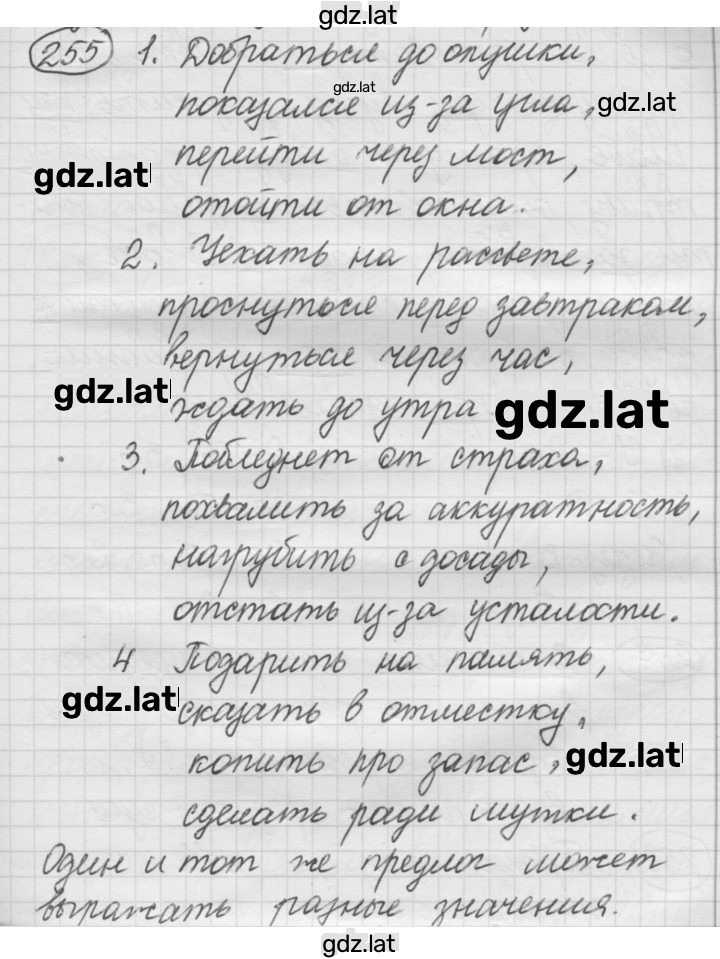 gdz.lat
255 1. Добраться до опушки,
gdz.lat
показался из-за угла, gdz.lat
перейти через мост,
gdz.lat
отойти от окна.
2. Уехать на рассвете,
проснуться перед завтраком,
вернуться через час,
gdz.lat
ждать до утра gdz.lat
3. Побледнет от страха,
похвалить за аккуратность,
нагрубить с досады,
отстать из-за усталости.
4 Подарить на память,
gdz.lat
сказать в отместку,
копить про запас, gdz.lat
сделать ради шутки.
Один и тот же предлог может
выражать разные значения.
gdz.lat